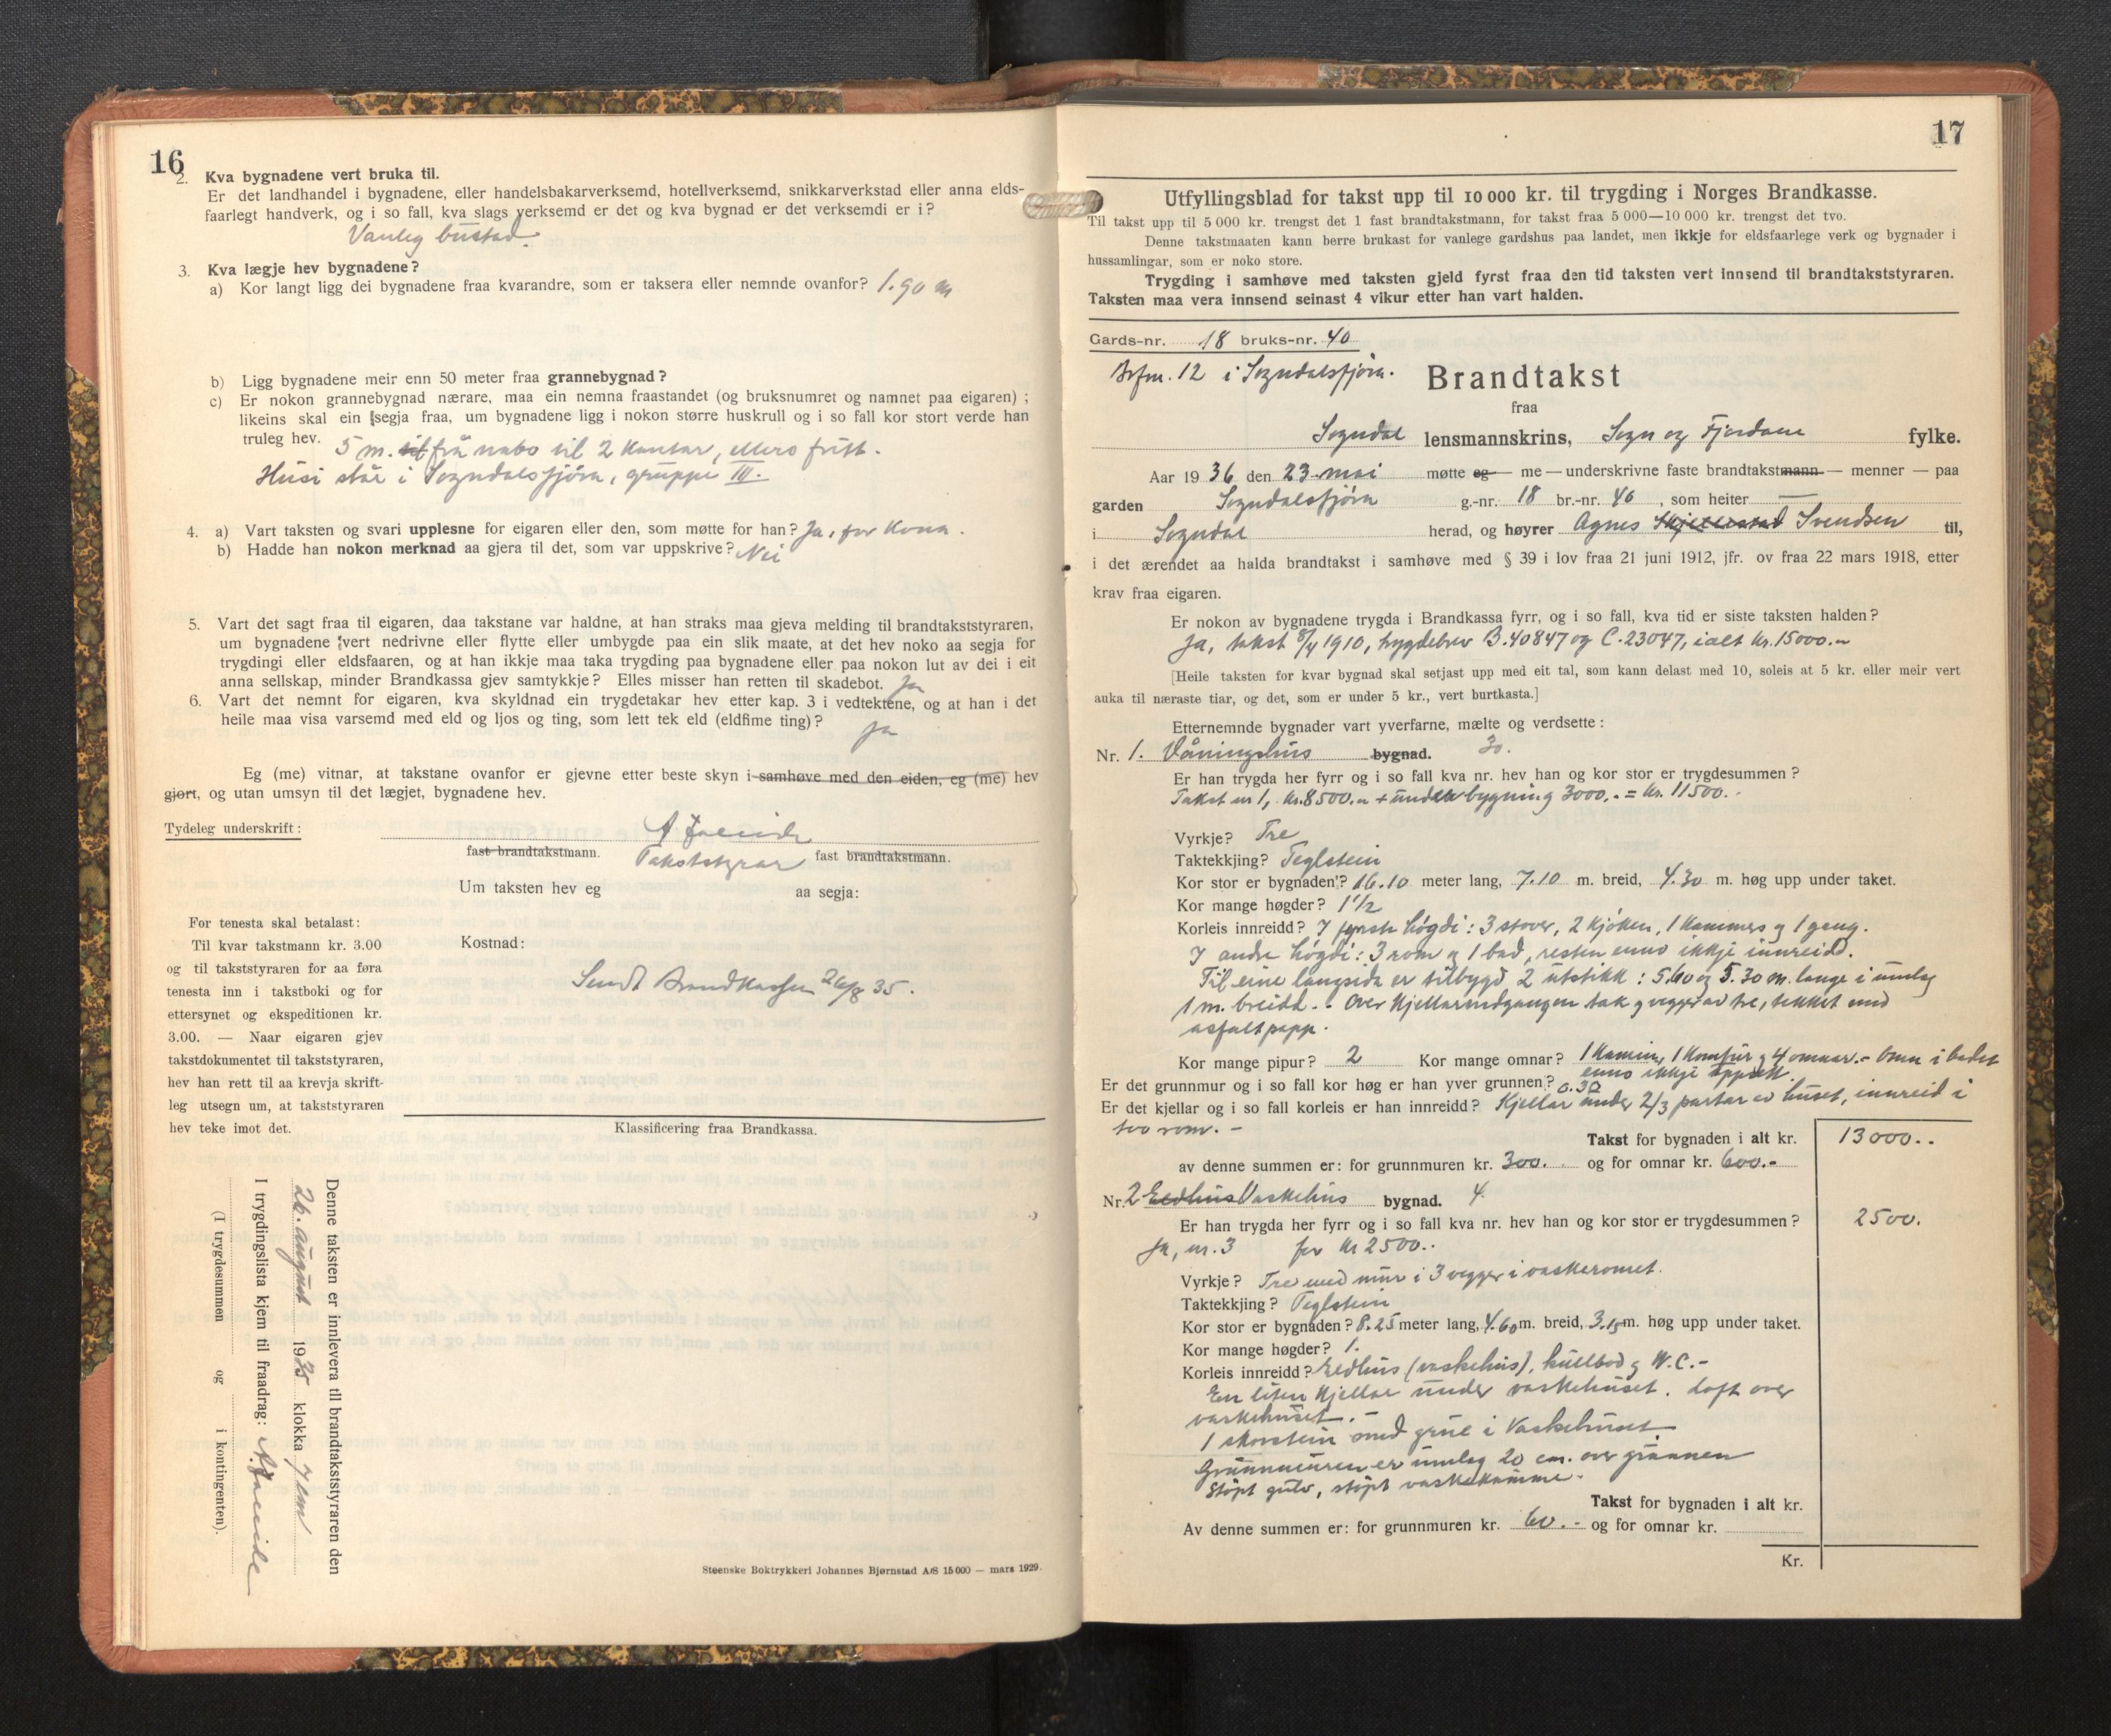 16
2. Kva bygnadene vert bruka til.
Er det landhandel i bygnadene, eller handelsbakarverksemd, hotellverksemd, snikkarverkstad eller anna elds-
faarlegt handverk, og i so fall, kva slags verksemd er det og kva bygnad er det verksemdi er i?
Vanleg bustad.
3. Kva lægje hev bygnadene?
a) Kor langt ligg dei bygnadene fraa kvarandre, som er taksera eller nemnde ovanfor? 1.90 m
b) Ligg bygnadene meir enn 50 meter fraa grannebygnad?
c) Er nokon grannebygnad nærare, maa ein nemna fraastandet (og bruksnumret og namnet paa eigaren);
likeins skal ein segja fraa, um bygnadene ligg i nokon større huskrull og i so fall kor stort verde han
truleg hev. 5 m. til frå nabo til 2 kantar, ellers fritt.
Husi står i Sogndalsfjøra, gruppe III.
4. a) Vart taksten og svari upplesne for eigaren eller den, som møtte for han? Ja, for kona.
b) Hadde han nokon merknad aa gjera til det, som var uppskrive? Nei
5. Vart det sagt fraa til eigaren, daa takstane var haldne, at han straks maa gjeva melding til brandtakststyraren,
um bygnadene vert nedrivne eller flytte eller umbygde paa ein slik maate, at det hev noko aa segja for
trygdingi eller eldsfaaren, og at han ikkje maa taka trygding paa bygnadene eller paa nokon lut av dei i eit
anna sellskap, minder Brandkassa gjev samtykkje? Elles misser han retten til skadebot. Ja
6. Vart det nemnt for eigaren, kva skyldnad ein trygdetakar hev etter kap. 3 i vedtektene, og at han i det
heile maa visa varsemd med eld og ljos og ting, som lett tek eld (eldfime ting)? Ja
Eg (me) vitnar, at takstane ovanfor er gjevne etter beste skyn i samhøve med den eiden, eg (me) hev
gjort, og utan umsyn til det lægjet, bygnadene hev.
Tydeleg underskrift:
fast brandtakstmann. Takststyrar fast brandtakstmann.
Um taksten hev eg aa segja:
For tenesta skal betalast:
Til kvar takstmann kr. 3.00
og til takststyraren for aa føra
tenesta inn i takstboki og for
ettersynet og ekspeditionen kr.
3.00. — Naar eigaren gjev
takstdokumentet til takststyraren,
hev han rett til aa krevja skrift-
leg utsegn um, at takststyraren
hev teke imot det.
Kostnad:
Sendt Brandkassen 26/8 35.
Klassificering fraa Brandkassa.
Denne taksten er innlevera til brandtakststyraren den
26. august 1935 klokka 7 em
I trygdingslista kjem til fraadrag:
(I trygdesummen og i kontingenten).
Steenske Boktrykkeri Johannes Bjørnstad A/S 15000 — mars 1929.
17
Utfyllingsblad for takst upp til 10 000 kr. til trygding i Norges Brandkasse.
Til takst upp til 5 000 kr. trengst det 1 fast brandtakstmann, for takst fraa 5 000—10 000 kr. trengst det tvo.
Denne takstmaaten kann berre brukast for vanlege gardshus paa landet, men ikkje for eldsfaarlege verk og bygnader i
hussamlingar, som er noko store.
Trygding i samhøve med taksten gjeld fyrst fraa den tid taksten vert innsend til brandtakststyraren.
Taksten maa vera innsend seinast 4 vikur etter han vart halden.
Gards-nr. 18 bruks-nr. 40
12 i Sogndalsfjøra.
Brandtakst
fraa
Sogndal lensmannskrins, Sogn og Fjordane fylke.
Aar 1936 den 23. mai møtte eg — me — underskrivne faste brandtakstmann — menner — paa
garden Sogndalsfjøra g.-nr. 18 br.-nr. 40, som heiter —
i Sogndal herad, og høyrer Agnes Skjellestad Svendsen til,
i det ærendet aa halda brandtakst i samhøve med § 39 i lov fraa 21 juni 1912, jfr. ov fraa 22 mars 1918, etter
krav fraa eigaren.
Er nokon av bygnadene trygda i Brandkassa fyrr, og i so fall, kva tid er siste taksten halden?
Ja, takst 8/4 1910, trygdebrev B.40847 og C.23047, ialt kr. 15000.-
[Heile taksten for kvar bygnad skal setjast upp med eit tal, som kann delast med 10, soleis at 5 kr. eller meir vert
auka til næraste tiar, og det, som er under 5 kr., vert burtkasta.]
Etternemnde bygnader vart yverfarne, mælte og verdsette:
Nr. 1. Våningshus bygnad. 30.
Er han trygda her fyrr og i so fall kva nr. hev han og kor stor er trygdesummen?
Takst nr 1, kr. 8500.- + underbygning 3000,- = kr. 11500.-
Vyrkje? Tre
Taktekkjing? Teglstein
Kor stor er bygnaden? 16.10 meter lang, 7.10 m. breid, 4.30 m. høg upp under taket.
Kor mange høgder? 1 1/2
Korleis innreidd? I fyrste høgdi: 3 stover, 2 kjøken, 1 kammers og 1 gang.
I andre høgdi: 3 rom og 1 bad, resten enno ikkje innreidd.
Til eine langsida er tilbygd 2 utstikk: 5.60 og 5.30 m. lange i umlag
1 m. breidd. - Over kjellarnedgangen tak og vegger av tre, tekket med
asfaltpapp.
Kor mange pipur? 2 Kor mange omnar? 1 kamin, 1 komfür og 4 omnar. - Omn i badet
enno ikkje uppsett.
Er det grunnmur og i so fall kor høg er han yver grunnen? 0.30
Er det kjellar og i so fall korleis er han innreidd? Kjellar under 2/3 partar av huset, innreid i
two rom. -
Takst for bygnaden i alt kr. 13000..
av denne summen er: for grunnmuren kr. 300. og for omnar kr. 600.-
Nr. 2 Eldhus Vaskehus bygnad. 4.
Er han trygda her fyrr og i so fall kva nr. hev han og kor stor er trygdesummen? 2500.
Ja, nr. 3 for kr 2500..
Vyrkje? Tre med mur i 3 vegger i vaskeromet.
Taktekkjing? Teglstein
Kor stor er bygnaden? 8.25 meter lang, 4.60 m. breid, 3.15 m. høg upp under taket.
Kor mange høgder? 1.
Korleis innreidd? Eldhus (vaskehus), kullbod og W.C.-
En liten kjellar under vaskehuset. Loft over
vaskehuset. -
1 skorstein med grue i Vaskehuset
Grunnmuren er umlag 20 cm. over grunnen
Støpt gulv, støpt vaskekumme.
Takst for bygnaden i alt kr.
Av denne summen er: for grunnmuren kr. 60.- og for omnar kr.
Kr.